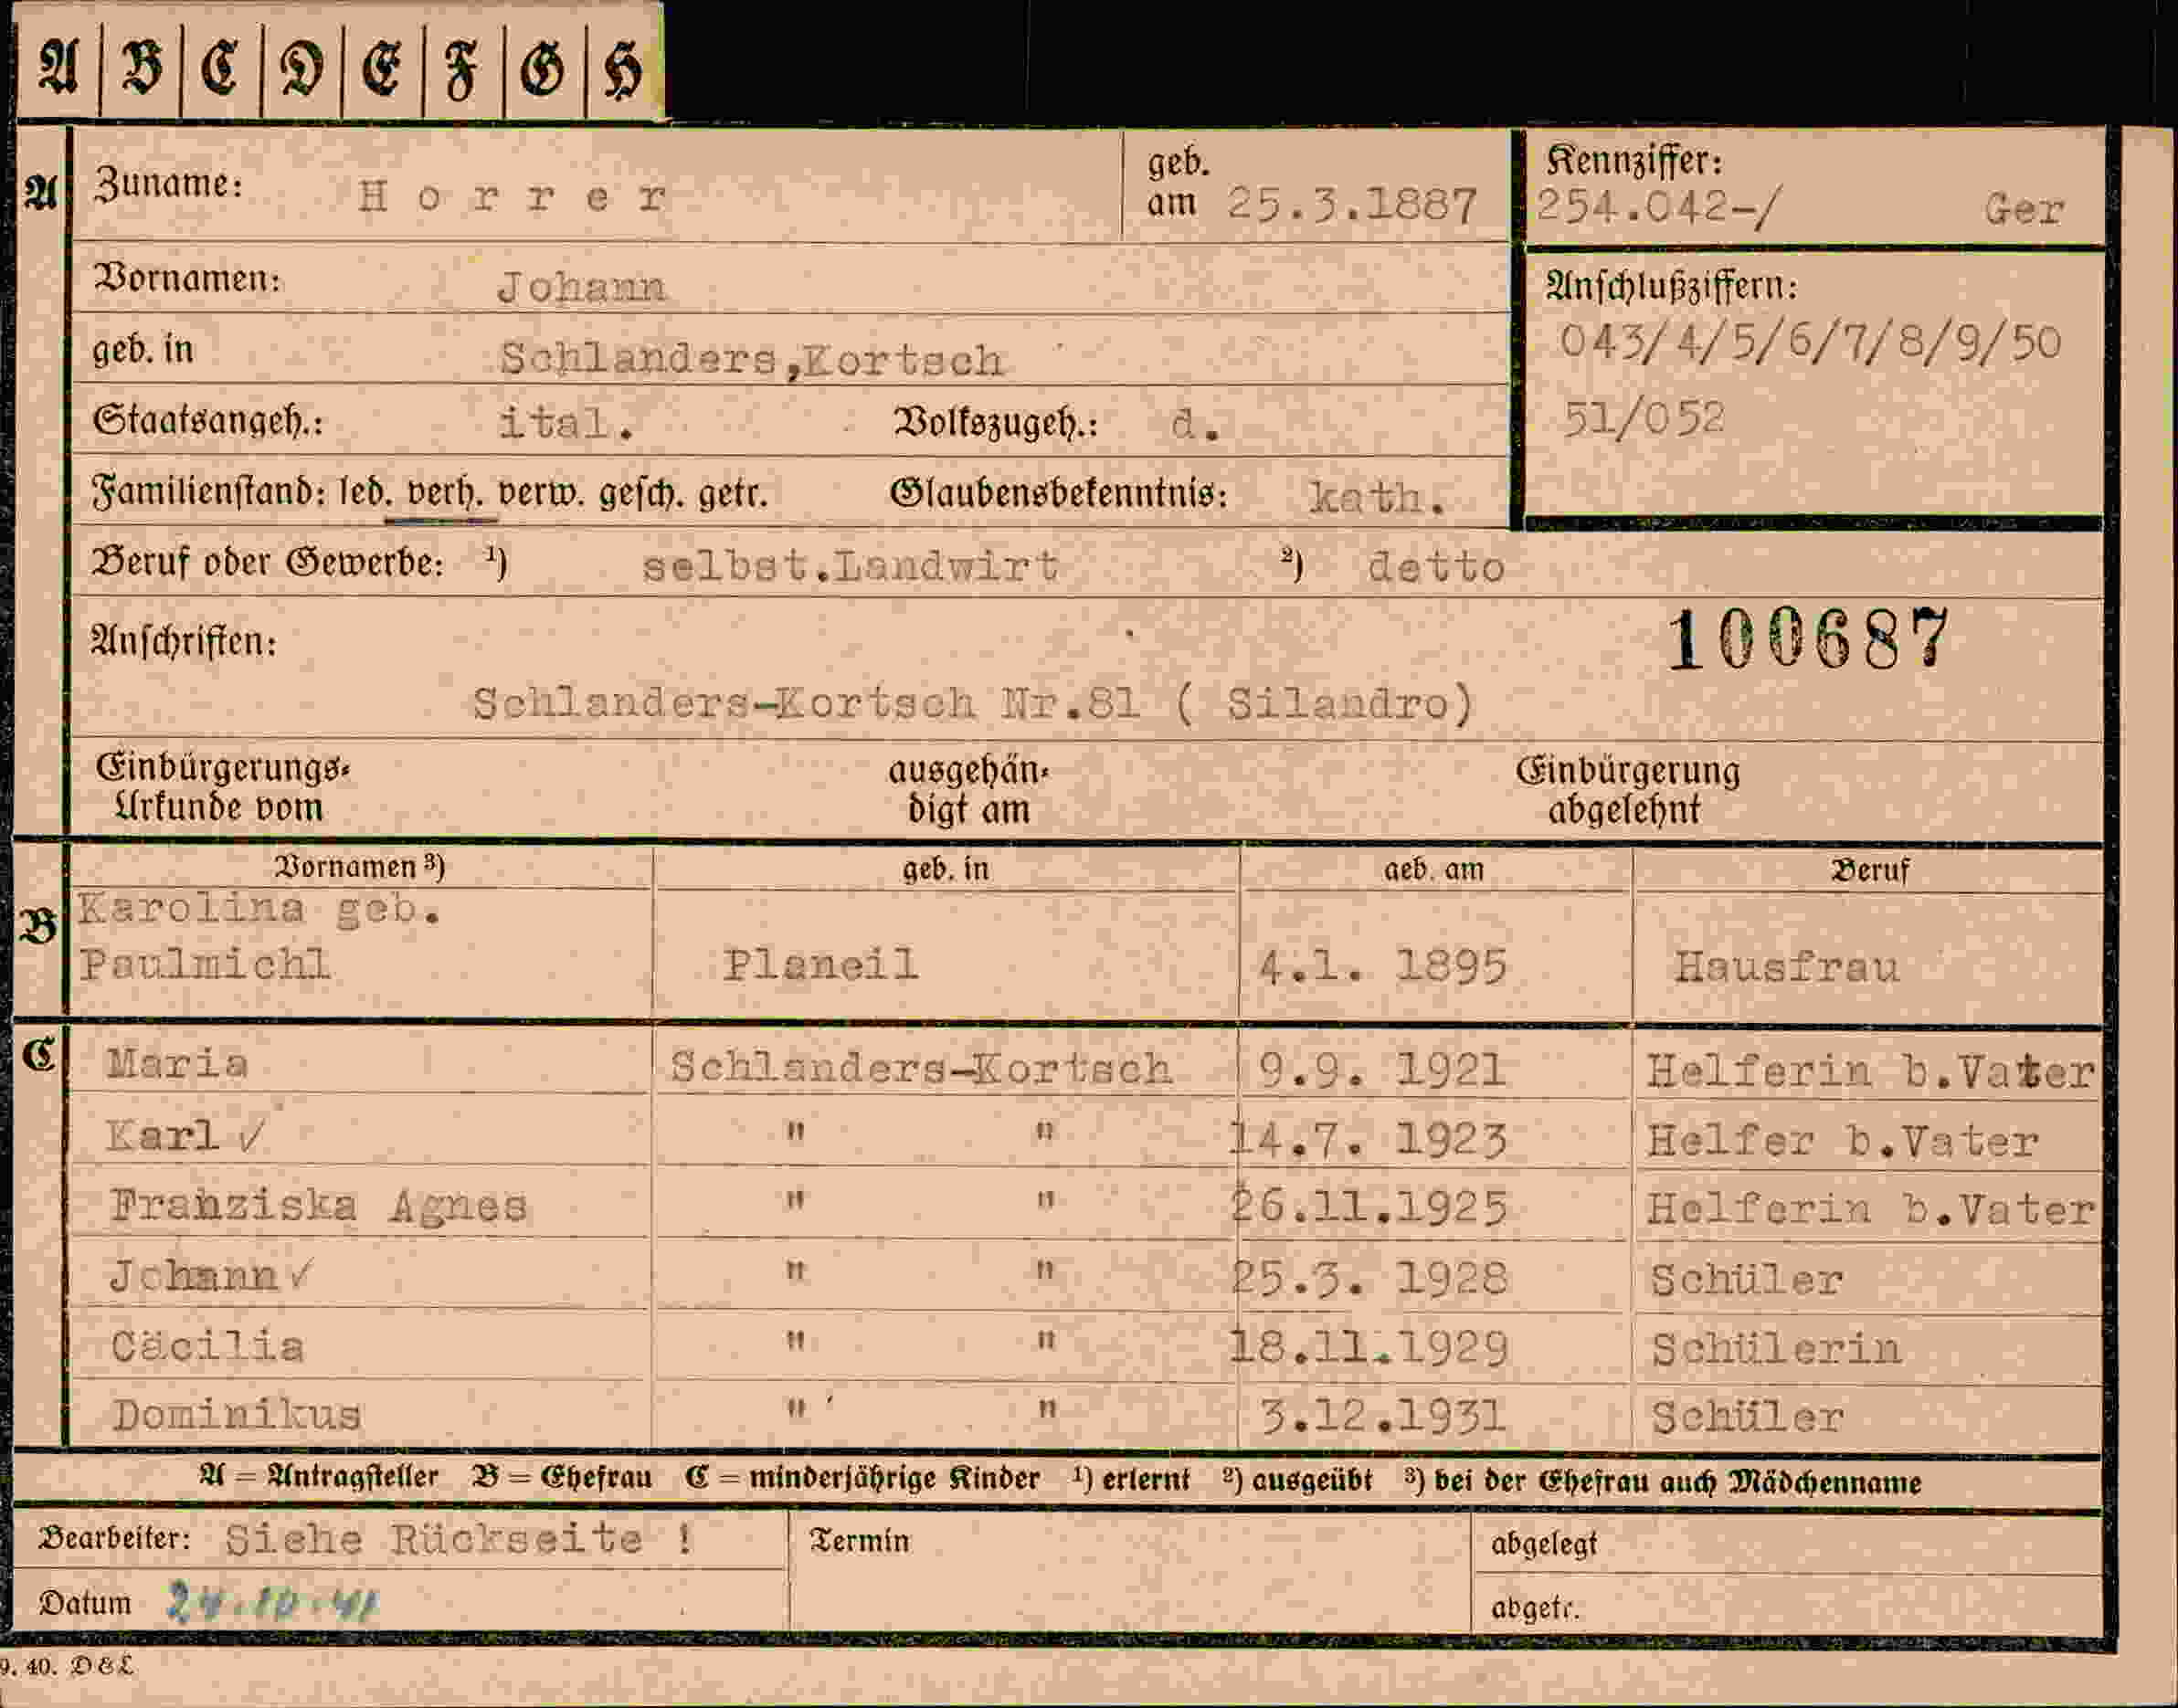 A B C D E F G H
A Zuname: Horrer geb. am 25.3.1887 Kennziffer: 254.042-/ Ger
Vornamen: Johann
Anschlußziffern:
geb. in Schlanders,Kortsch 043/4/5/6/7/8/9/50
Staatsangeh.: ital. Volkszugeh.: d. 51/052
Familienstand: led. verh. verw. gesch. getr. Glaubensbekenntnis: kath.
Beruf oder Gewerbe: 1) selbst.Landwirt 2) detto
Anschriften: 100687
Schlanders-Kortsch Nr.81 ( Silandro)
Einbürgerungs- ausgehän- Einbürgerung
Urkunde vom digt am abgelehnt
Vornamen 3) geb. in geb. am Beruf
B Karolina geb.
Paulmichl Planeil 4.1. 1895 Hausfrau
C Maria Schlanders-Kortsch 9.9. 1921 Helferin b.Vater
Karl ✓ " " 14.7. 1923 Helfer b.Vater
Franziska Agnes " " 26.11.1925 Helferin b.Vater
Johann ✓ " " 25.3. 1928 Schüler
Cäcilia " " 18.11.1929 Schülerin
Dominikus " " 3.12.1931 Schüler
A = Antragsteller B = Ehefrau C = minderjährige Kinder 1) erlernt 2) ausgeübt 3) bei der Ehefrau auch Mädchenname
Bearbeiter: Siehe Rückseite ! Termin abgelegt
Datum 24.10.41 abgetr.
9. 40. D & L